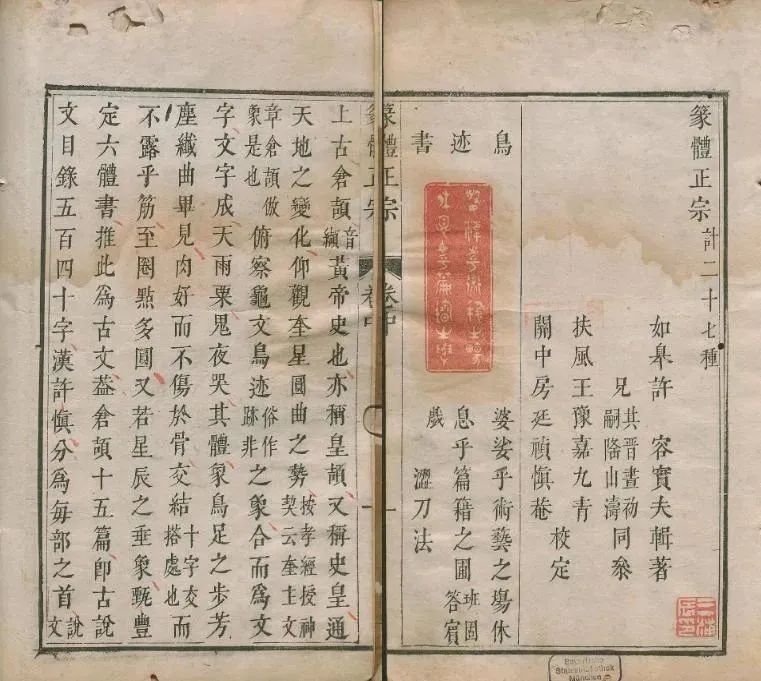 篆體正宗計二十七種
如皋許 容實夫輯著
兄其晉晝初
嗣隆山濤同叅
扶風王豫嘉九青
開中房廷禎慎菴 校定
鳥迹書
婆娑乎術藝之場休
息乎篇籍之圃班固答賓
戲 澀刀法
篆體正宗 卷中 一
上古倉頡音纈黃帝史也亦稱皇頡又稱史皇通
天地之變化仰觀奎星圓曲之勢按孝經授神契云奎主文
章倉頡倣象是也俯察龜文鳥迹俗作跡非之象合而爲文
字文字成天雨粟鬼夜哭其體象鳥足之步芳
塵纖曲畢見肉好而不傷於骨交結十字交搭處也而
不露乎筋至圈點多圓又若星辰之垂象甄豐
定六體書推此爲古文葢倉頡十五篇卽古說
文目錄五百四十字漢許慎分爲每部之首說文
Bayerische
Staatsbibliothek
München